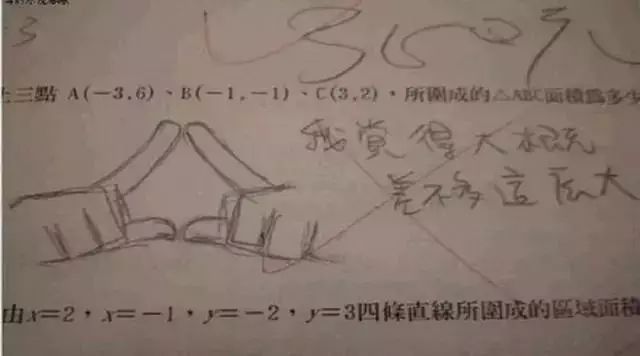 上三點 A(-3,6)、B(-1,-1)、C(3,2)，所圍成的△ABC面積為多少
我覺得大概
差不多這麼大
由x=2，x=-1，y=-2，y=3四條直線所圍成的區域面積